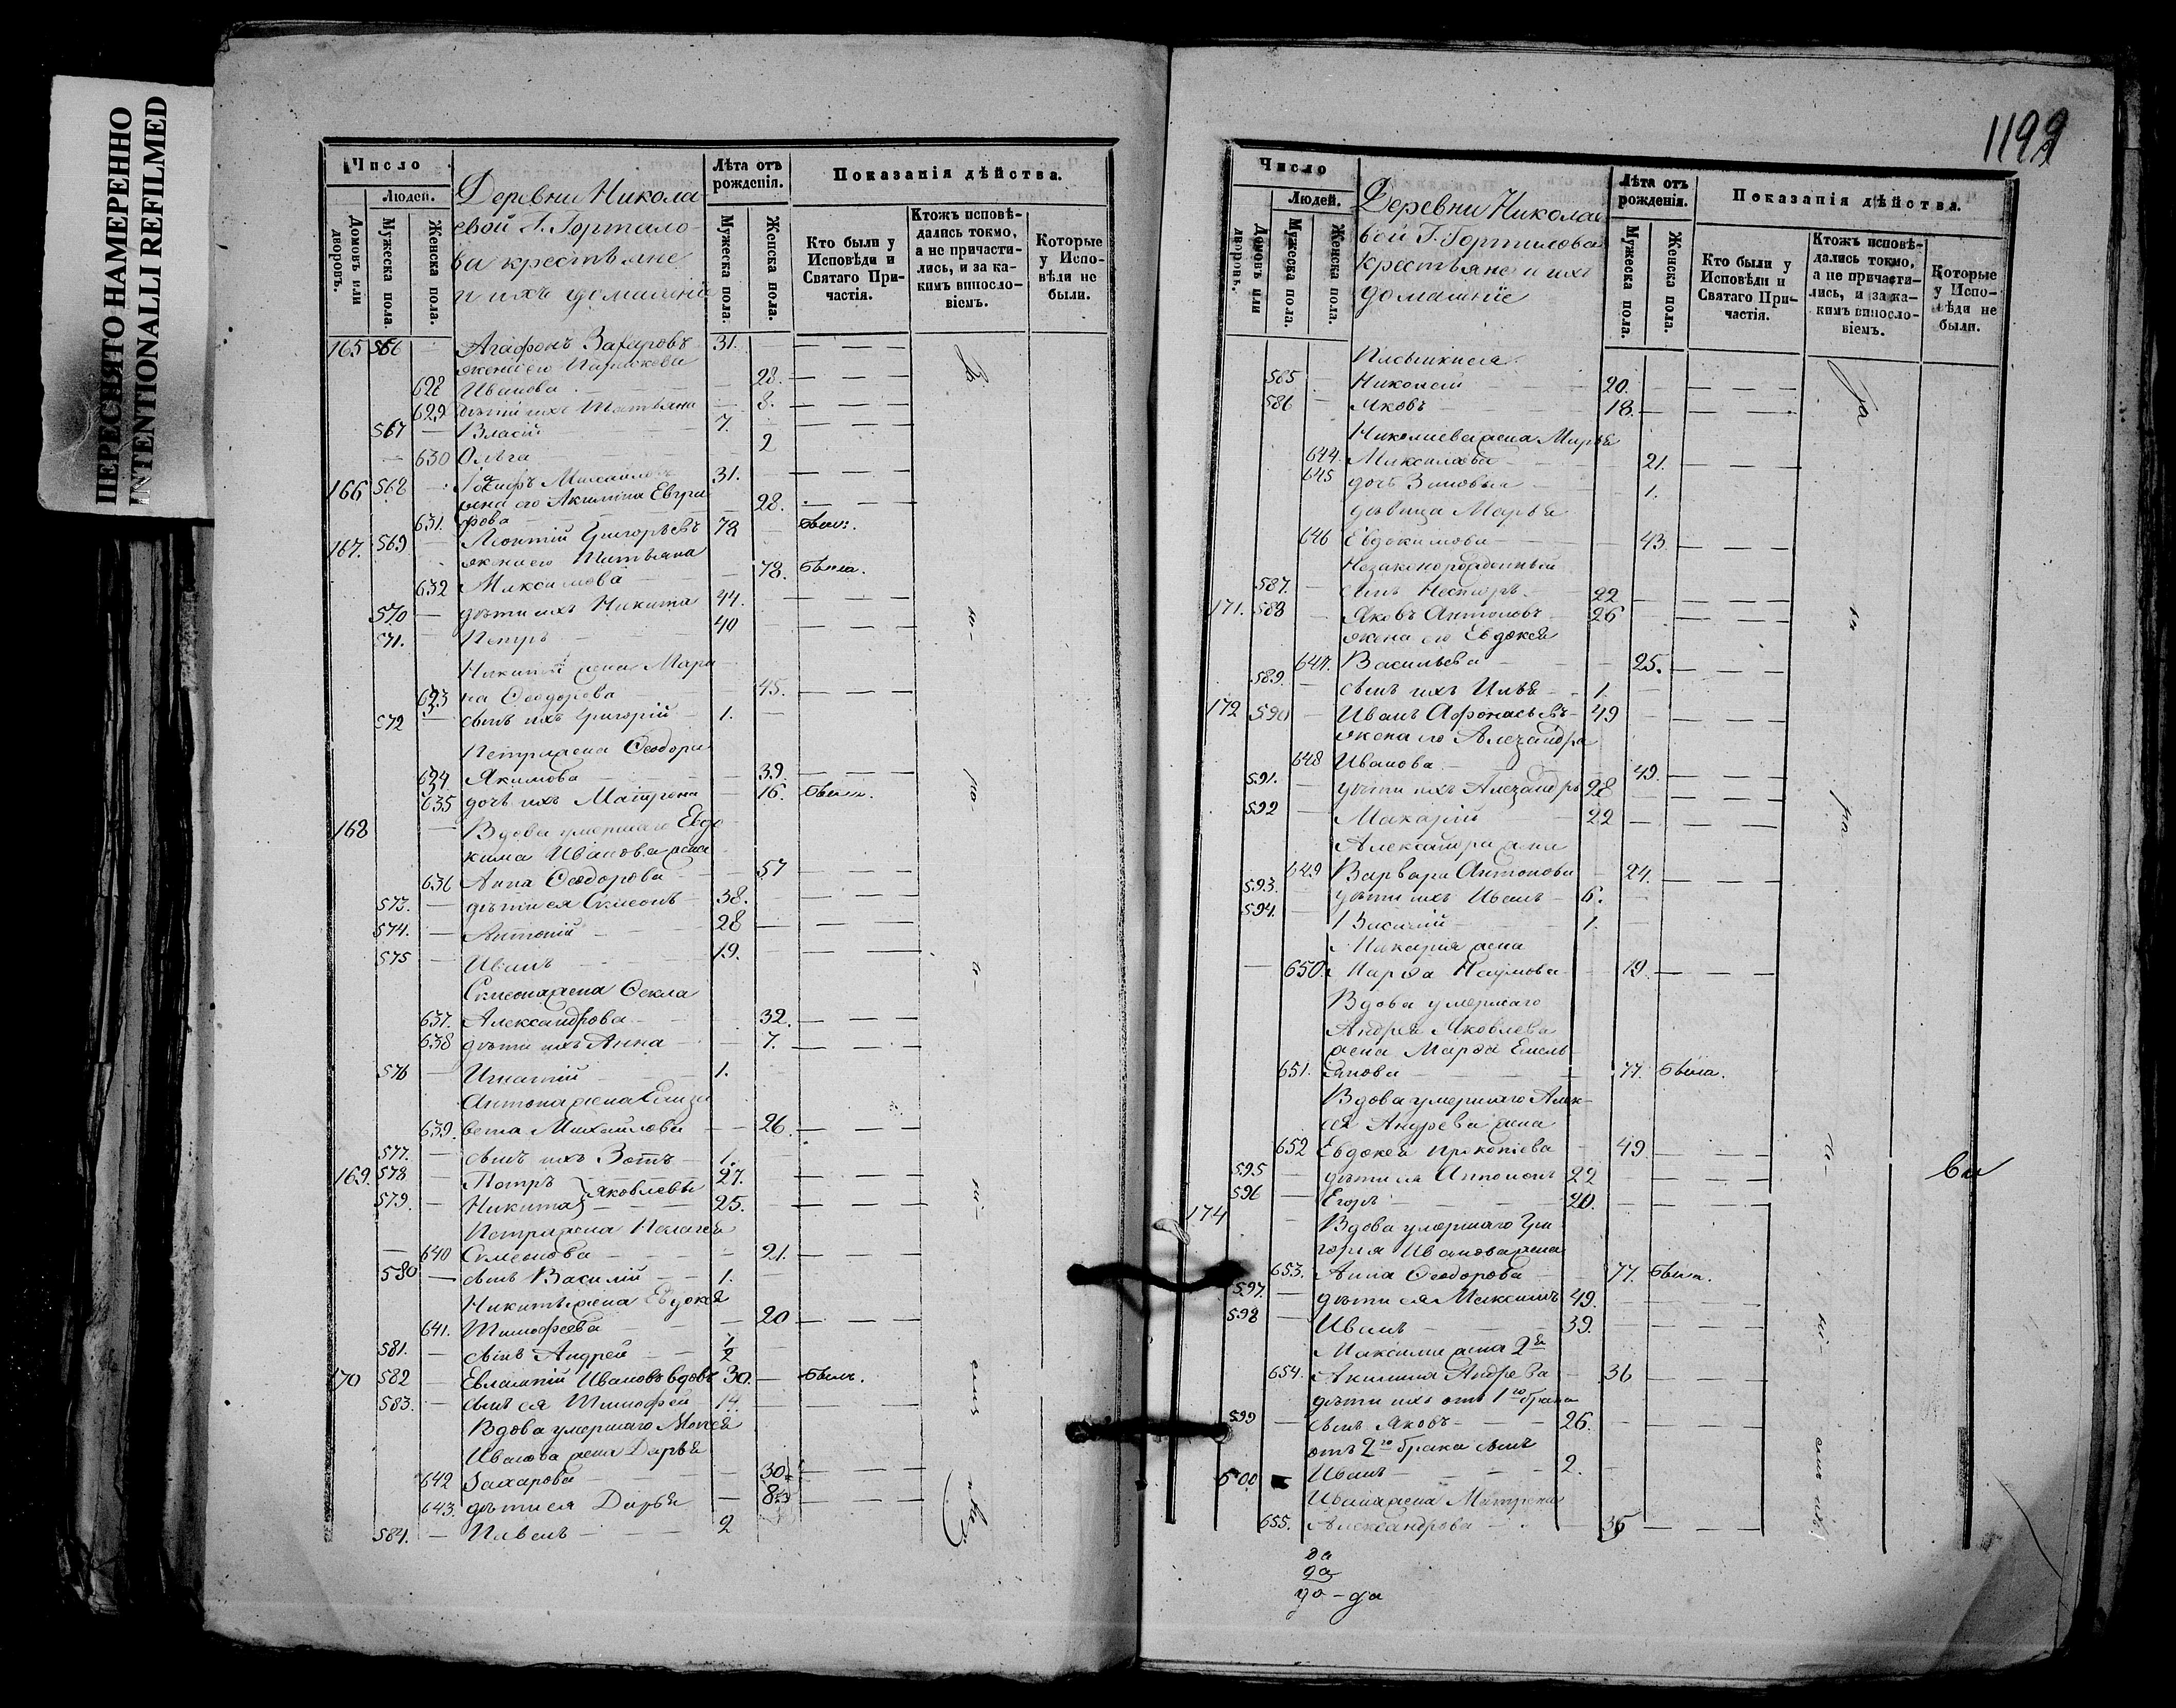 ПЕРЕСНЯТО НАМЕРЕННО
INTENTIONALLI REFILMED
Число
Людей.
Домовъ или дворовъ.
Мужеска пола.
Женска пола.
Деревни Никола
евой Г. Гортало
ва крестьяне
и ихъ домашніе
Лѣта отъ рожденія.
Мужеска пола.
Женска пола.
Показанія дѣйства.
Кто были у Исповѣди и Святаго Причастія.
Ктожъ исповѣдались токмо, а не причастились, и за какимъ винословіемъ.
Которые у Исповѣди не были.
165 566 — Агафонъ Захаровъ 31.
жена его Параскева
628 Иванова 28.
629 дѣти ихъ Татьяна 8.
567 — Власій 7.
— 630 Ольга 2
166 568 — Іосифъ Михайловъ 31.
жена его Акилина Евгра
631. фова 28.
167. 569 Леонтій Григорьевъ 78 былъ.
жена его Татьяна
632 Максимова 78. была.
570 — дѣти ихъ Никита 44.
571. Петръ 40
Никиты жена Мари
633 на Ѳеодорова 45.
572 — сынъ ихъ Григорій 1.
Петра жена Ѳеодора
634. Якимова 39.
635 дочь ихъ Матрена 16. была.
168 — Вдова умершаго Евдо
кима Иванова жена
636 Анна Ѳеодорова 57
573. — дѣти ея Симеонъ 38.
574. — Антоній 28
575 — Иванъ 19.
Симеона жена Ѳекла
637. Александрова 32.
638 дѣти ихъ Анна 7.
576 — Игнатій 1.
Антона жена Елиза
639. вета Михайлова 26.
577. — сынъ ихъ Зотъ 1.
169. 578 — Петръ } Яковлевы 27.
579. — Никита 25.
Петра жена Пелагея
— 640 Симеонова 21.
580 — сынъ Василій 1.
Никиты жена Евдокія
641. Тимофеева 20
581. — сынъ Андрей 1/2
170 582 — Евлампій Ивановъ вдовъ 30. былъ.
583. — сынъ ея Тимофей 14.
Вдова умершаго Моисея
Иванова жена Дарья
642 Захарова 30
643. дѣти ея Дарья 8
584. — Павелъ 2
1199
Число
Людей.
Домовъ или дворовъ.
Мужеска пола.
Женска пола.
Деревни Николае
вой Г. Горталова
крестьяне и ихъ
домашніе
Лѣта отъ рожденія.
Мужеска пола.
Женска пола.
Показанія дѣйства.
Кто были у Исповѣди и Святаго Причастія.
Ктожъ исповѣдались токмо, а не причастились, и за какимъ винословіемъ.
Которые у Исповѣди не были.
585 — Николай 20.
586 — Яковъ 18.
Николаева жена Марья
644. Максимова 21.
645 дочь Зиновья 1.
дѣвица Марья
646 Евдокимова 43
Незаконорожденный
587. — сынъ Несторъ 22
171. 588 — Яковъ Антоновъ 26
жена его Евдокея
647. Васильева 25.
589. — сынъ ихъ Илья 1.
172 590 — Иванъ Афонасьевъ 49
жена его Александра
648 Иванова 49.
591. — дѣти ихъ Александръ 28
592 — Макарій 22
Александра жена
649 Варвара Антонова 24.
593. дѣти ихъ Иванъ 6.
594. — Василій 1.
Макария жена
— 650. Марѳа Наумова 19.
Вдова умершаго
Андрея Яковлева
жена Марѳа Емель
651. янова 77. была.
Вдова умершаго Алек-
ея Андрева жена
652 Евдокея Прокопіева 49.
595 — дѣти ея Антонъ 22
596 — Егоръ 20.
174 — Вдова умершаго Гри
горія Иванова жена
653. Анна Ѳеодорова 77. была.
597. — дѣти ея Максимъ 49.
598 — Иванъ 39.
Максима жена 2я
654. Акилина Андрева 36
дѣти ихъ отъ 1го брака
599 — сынъ Яковъ 26.
отъ 2го брака сынъ
600 Иванъ 2.
Ивана жена Матрена
655. Александрова 35
да
да
да